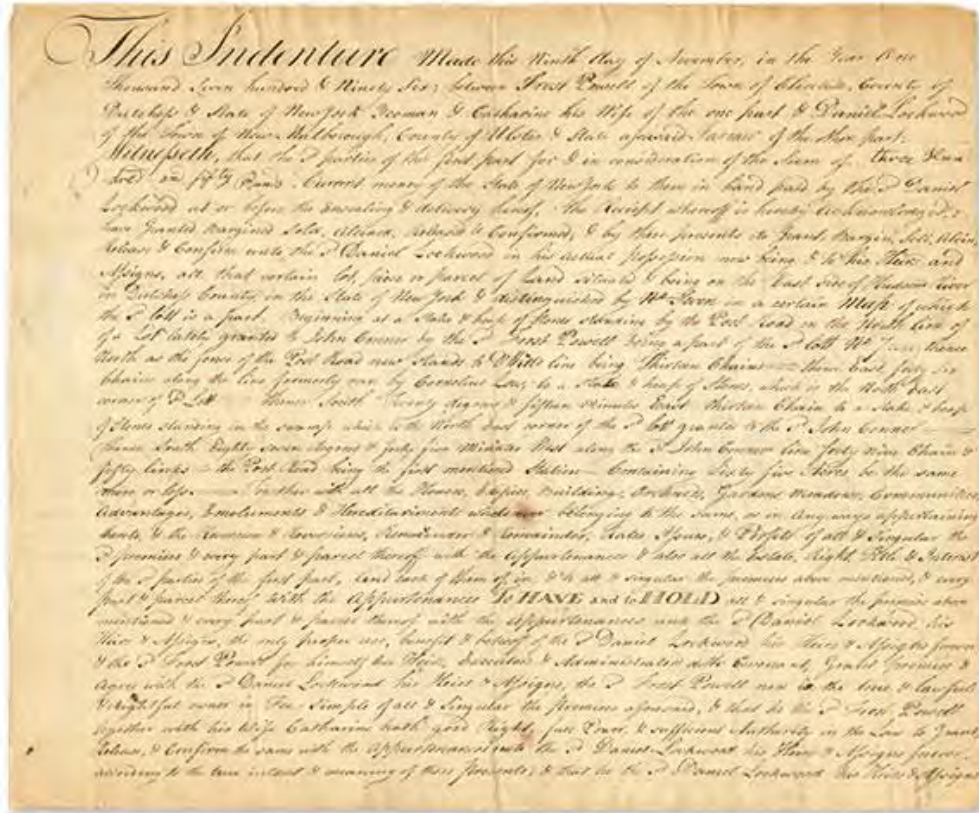 This Indenture Made this Ninth day of November, in the Year One
thousand Seven hundred & Ninety Six; between Frost Powell of the Town of Clinton, County of
Dutchess & State of New York Yeoman & Catharine his Wife of the one part & Daniel Lockwood
of the Town of New Marlborough, County of Ulster & State aforesaid of the other part.
Witneseth, that the Sd parties of the first part for & in consideration of the Sum of three Hun
dred and fifty Pounds Current money of the State of New York to them in hand paid by the Sd Daniel
Lockwood at or before the Ensealing & delivery hereof, the Receipt whereoff is hereby Acknowledged, &
have Granted Bargined Sold, Aliened, Released & Confirmed, & by these presents do Grant, Bargin, Sell, Alien
Release & Confirm unto the Sd Daniel Lockwood in his actual Possession now being & to his Heirs and
Assigns, all that certain lot, piece or parcel of Land situated & being on the East Side of Hudsons River
in Dutchess County in the State of New York & distinguished by No Seven in a certain Map of which
the Sd lott is a part. Beginning at a Stake & heap of Stones standing by the Post Road in the North line of
a Lot lately granted to John Conner by the Sd Frost Powell being a part of the Sd lott No thence
North as the fence of the Post Road now stands to line being Thirteen Chains thence East forty Six
Chains along the line formerly run by Cornelius to a Stake & heap of Stones, which is the North East
corner of Sd Lott Thence South Twenty degrees & fifteen Minutes East thirteen Chain to a Stake & heap
of Stones standing in the swamp which is the North East corner of the Sd lott granted to the Sd John Conner
thence South Eighty seven degrees & forty five Minutes West along the Sd John Conner line forty nine Chain &
fifty links to the Post Road being the first mentioned Station Containing Sixty five Acres be the same
more or less. Together with all the Houses, Buildings, Orchards, Gardens Meadows, Commodities
Advantages, Emoluments & Hereditaments belonging to the same, or in Any ways appertaining
& the Reversion & Reversions, Remainder & Remainders, Rents, Issues, & Profits of all & Singular the
Sd premises & every part & parcel thereof with the Appurtenances & also all the Estate, Right, Title & Interest
of the Sd parties of the first part, and each of them of, in, & to all & singular the premises above mentioned, & every
part & parcel thereof with the Appurtenances To HAVE and to HOLD all & singular the premises above
mentioned & every part & parcel thereof with the Appurtenances unto the Sd Daniel Lockwood, his
Heirs & Assigns, the only proper use, benefit & behoof of the Sd Daniel Lockwood his Heirs & Assigns forever
& the Sd Frost Powell for himself his Heirs, Executors & Administrators doth Covenant, Grant Promise &
Agree with the Sd Daniel Lockwood his Heirs & Assigns, the Sd Frost Powell now is the true & lawful
& Rightful owner in Fee Simple of all & Singular the premises aforesaid, & that he the Sd Frost Powell
together with his Wife Catharine hath good Right, full Power, & sufficient Authority in the Law to Grant
Release, & Confirm the same with the Appurtenances unto the Sd Daniel Lockwood his Heirs & Assigns forever
according to the true intent & meaning of these Presents; & that he the Sd Daniel Lockwood his Heirs & Assigns